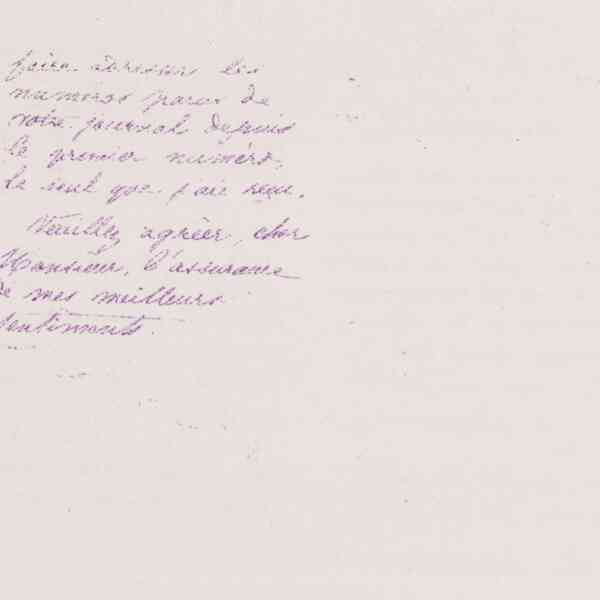 faire adresser les
numéros parus de
votre journal depuis
le premier numéro,
le seul que j'aie reçu.
Veuillez agréer, cher
Monsieur, l'assurance
de mes meilleurs
sentiments.